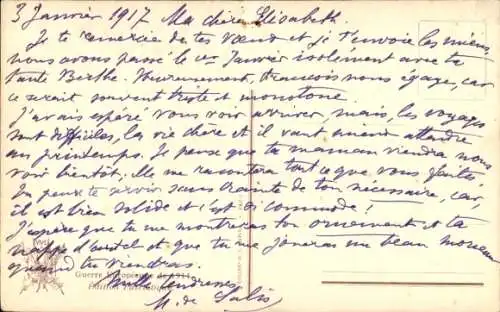 3 Janvier 1917 Ma chère Elisabeth.
Je te remercie de tes vœux et je t'envoie les miens,
nous avons passé le 1er Janvier isolément avec ta
tante Berthe. Heureusement, François nous égaye, car
ce serait souvent triste et monotone.
J'avais espéré vous voir arriver, mais, les voyages
sont difficiles, la vie chère et il vaut mieux attendre
au printemps. Je pense que ta maman viendra nous
voir bientôt, elle me racontera tout ce que vous faites,
Tu peux te servir sans crainte de ton nécessaire, car,
il est bien solide et c'est si commode!
J'espère que tu me montreras ton ornement et ta
nappe d'autel et que tu me joueras un beau morceau
quand tu viendras.
Guerre Européenne de 1914
Edition Patriotique
Mille tendresses
M. de Salis